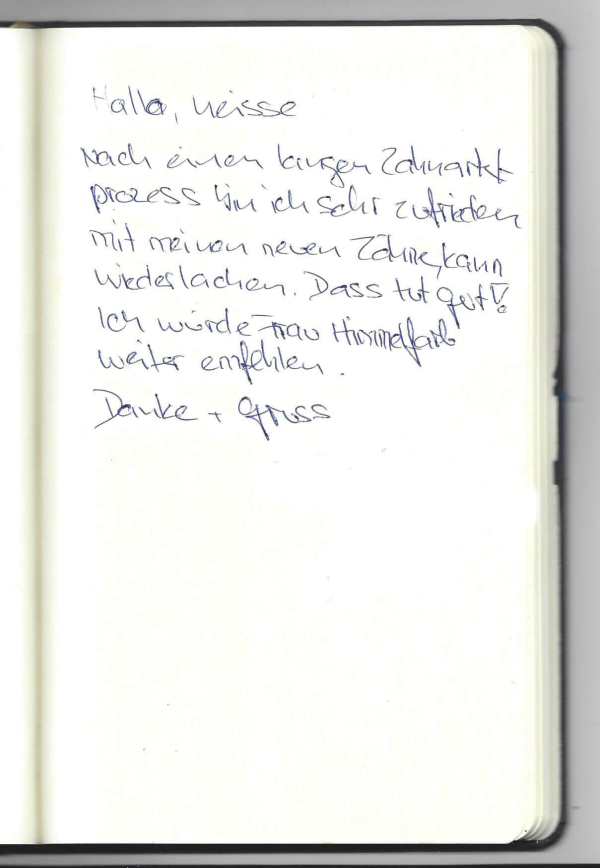 Hallo, heisse
Nach einen langen Zahnarkt
prozess bin ich sehr zufrieden
mit meinen neuen Zähne, kann
wieder lachen. Dass tut gut!
Ich würde Frau Himmelfarb
weiter empfehlen.
Danke + Gruss